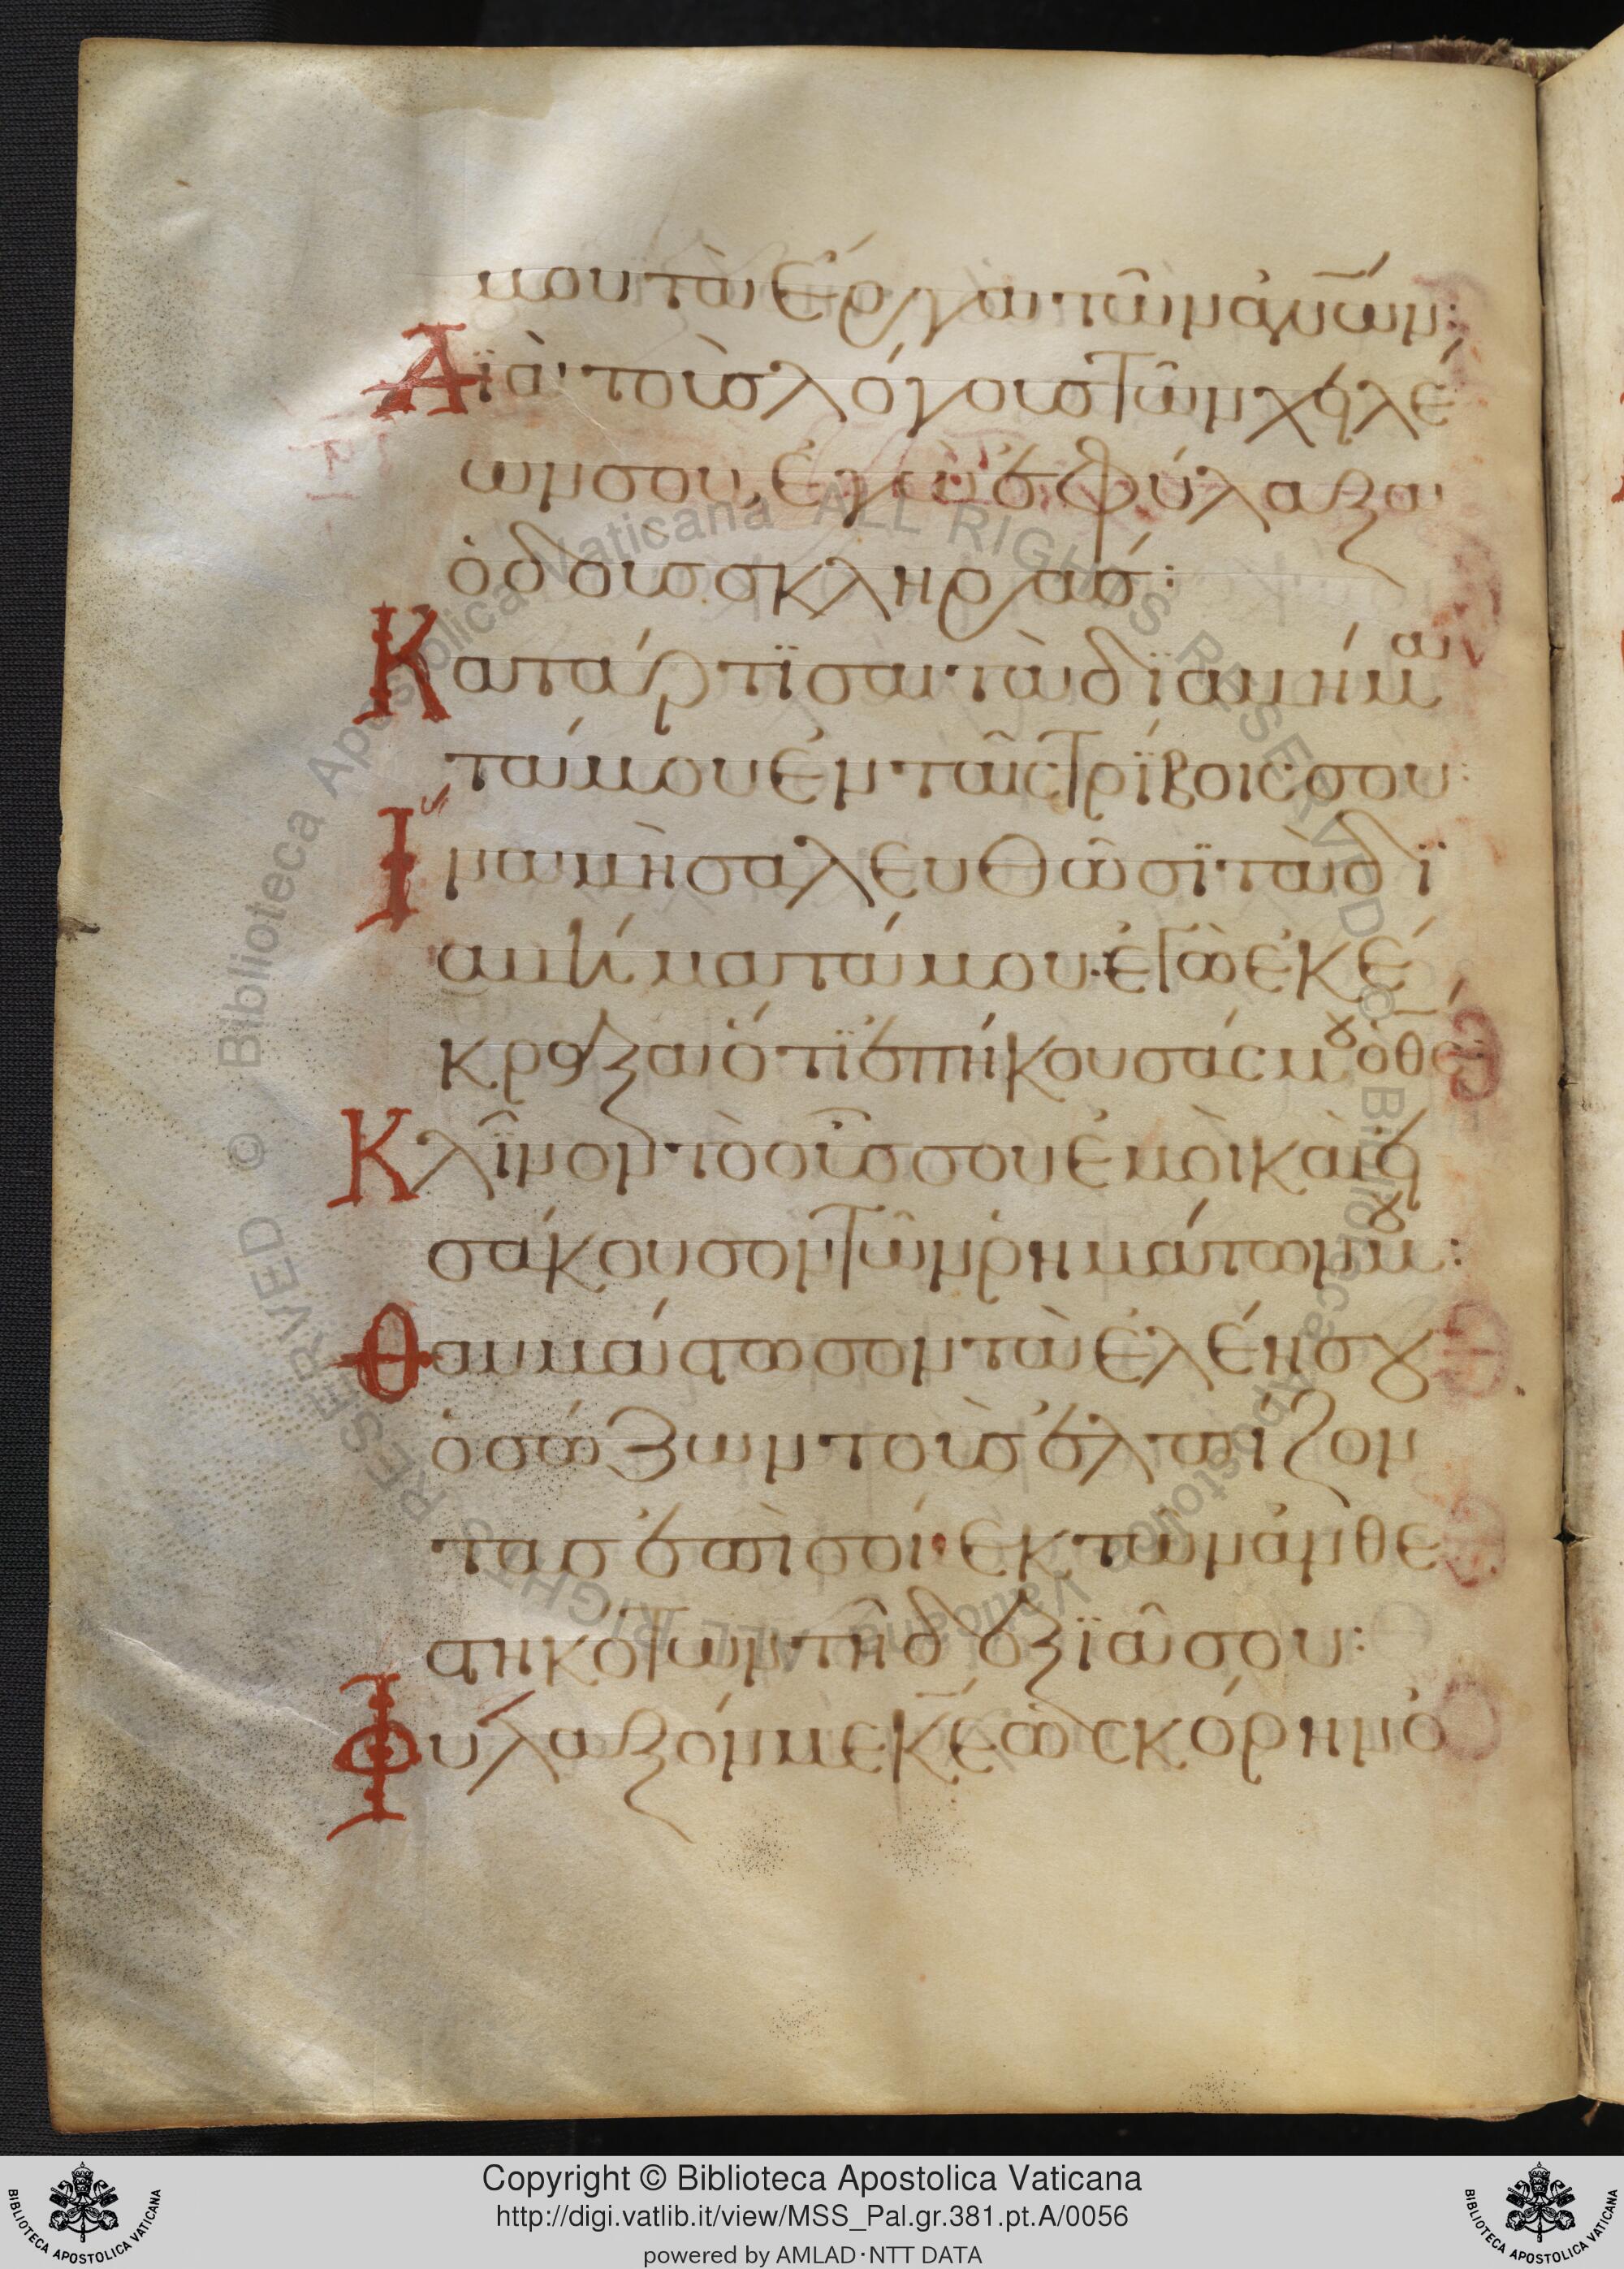 μου τὰ ἔργα τῶν ἀν̅ω̅ν:
Διὰ τοὺσ λόγουσ τῶν χειλέ
ων σου, ἐγὼ ἐφύλαξα
ὁδοὺσ σκληράσ:
Κατάρτϊσαι τὰ δϊαβήμα
τά μου ἐν ταῖς τρίβοις σου:
Ἵνα μὴ σαλευθῶσϊ τὰ δϊ
αβήματά μου· ἐγὼ ἐκέ
κραξα ὅτϊ ἐπήκουσάς μου ὁ θ̅ς̅:
Κλῖνον τὸ οὖσ σου ἐμοὶ καὶ εἰ
σάκουσον τῶν ῥημάτων μου:
Θαυμάστωσον τὰ ἐλέη σου
ὁ σώζων τοὺσ ἐλπίζον
τασ ἐπὶ σοί· ἐκ τῶν ἀνθε
στηκότων τῇ δεξϊᾷ σου:
Φύλαξόν με κ̅ε̅ ὡς κόρην ὀ
Copyright © Biblioteca Apostolica Vaticana
http://digi.vatlib.it/view/MSS_Pal.gr.381.pt.A/0056
powered by AMLAD·NTT DATA
BIBLIOTECA APOSTOLICA VATICANA
BIBLIOTECA APOSTOLICA VATICANA